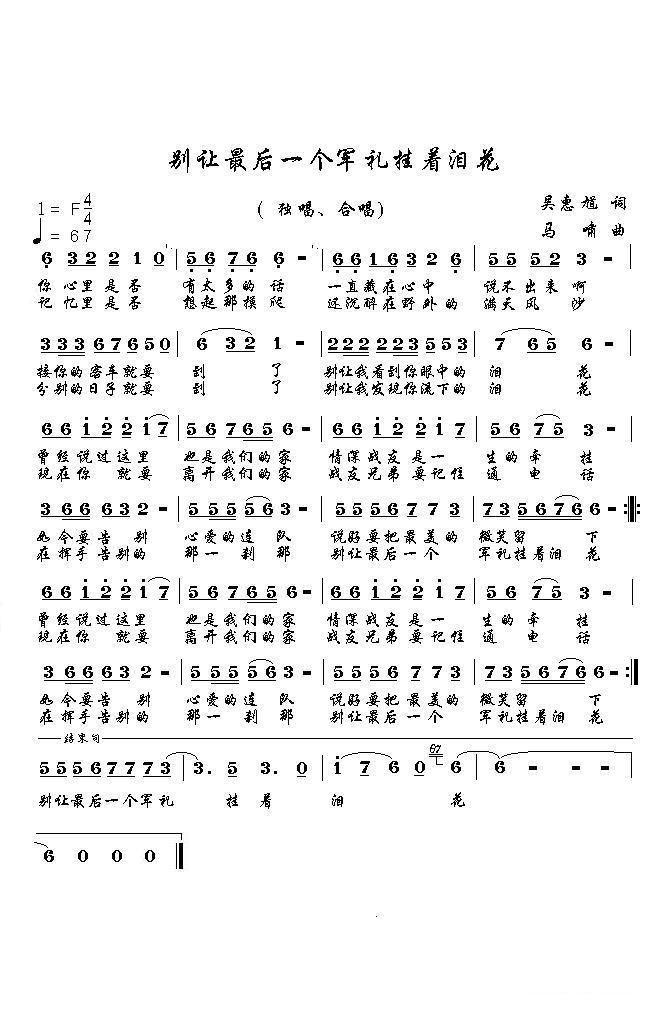 别让最后一个军礼挂着泪花
1= F 4/4
♩ = 67
( 独唱、合唱)
吴惠尴 词
马 啸 曲
6 32 2 1 0 | 5 6 7 6 6 - | 6 6 1 6 3 2 6 | 5 5 5 2 3 - |
你心里是否 有太多的话 一直藏在心中 说不出来啊
记忆里是否 想起那摸爬 还沉醉在野外的 满天风沙
3 3 3 6 7 6 5 0 | 6 3 2 1 - | 2 2 2 2 2 3 5 5 3 | 7 6 5 6 |
接你的客车就要 到 了 别让我看到你眼中的 泪 花
分别的日子就要 到 了 别让我发现你流下的 泪 花
6 6 i 2 2 i 7 | 5 6 7 6 5 6 - | 6 6 i 2 2 i 7 | 5 6 7 5 3 - |
曾经说过这里 也是我们的家 情深战友是一 生的牵挂
现在你 就要 离开我们的家 战友兄弟要记住 通 电 话
3 6 6 6 3 6 3 2 - | 5 5 5 5 6 3 - | 5 5 5 6 7 7 3 | 7 3 5 6 7 6 6 - :
如今要告 别 心爱的连队 说好要把最美的 微笑留 下
在挥手告别的 那一刹那 别让最后一个 军礼挂着泪 花
6 6 i 2 2 i 7 | 5 6 7 6 5 6 - | 6 6 i 2 2 i 7 | 5 6 7 5 3 - |
曾经说过这里 也是我们的家 情深战友是一 生的牵挂
现在你 就要 离开我们的家 战友兄弟要记住 通 电 话
3 6 6 6 3 6 3 2 - | 5 5 5 5 6 3 - | 5 5 5 6 7 7 3 | 7 3 5 6 7 6 6 - :
如今要告 别 心爱的连队 说好要把最美的 微笑留 下
在挥手告别的 那一刹那 别让最后一个 军礼挂着泪 花
结束句
5 5 5 6 7 7 7 3 | 3. 5 3. 0 | i 7 6 0 67 6 | 6 - - - |
别让最后一个军礼 挂 着 泪 花
6 0 0 0